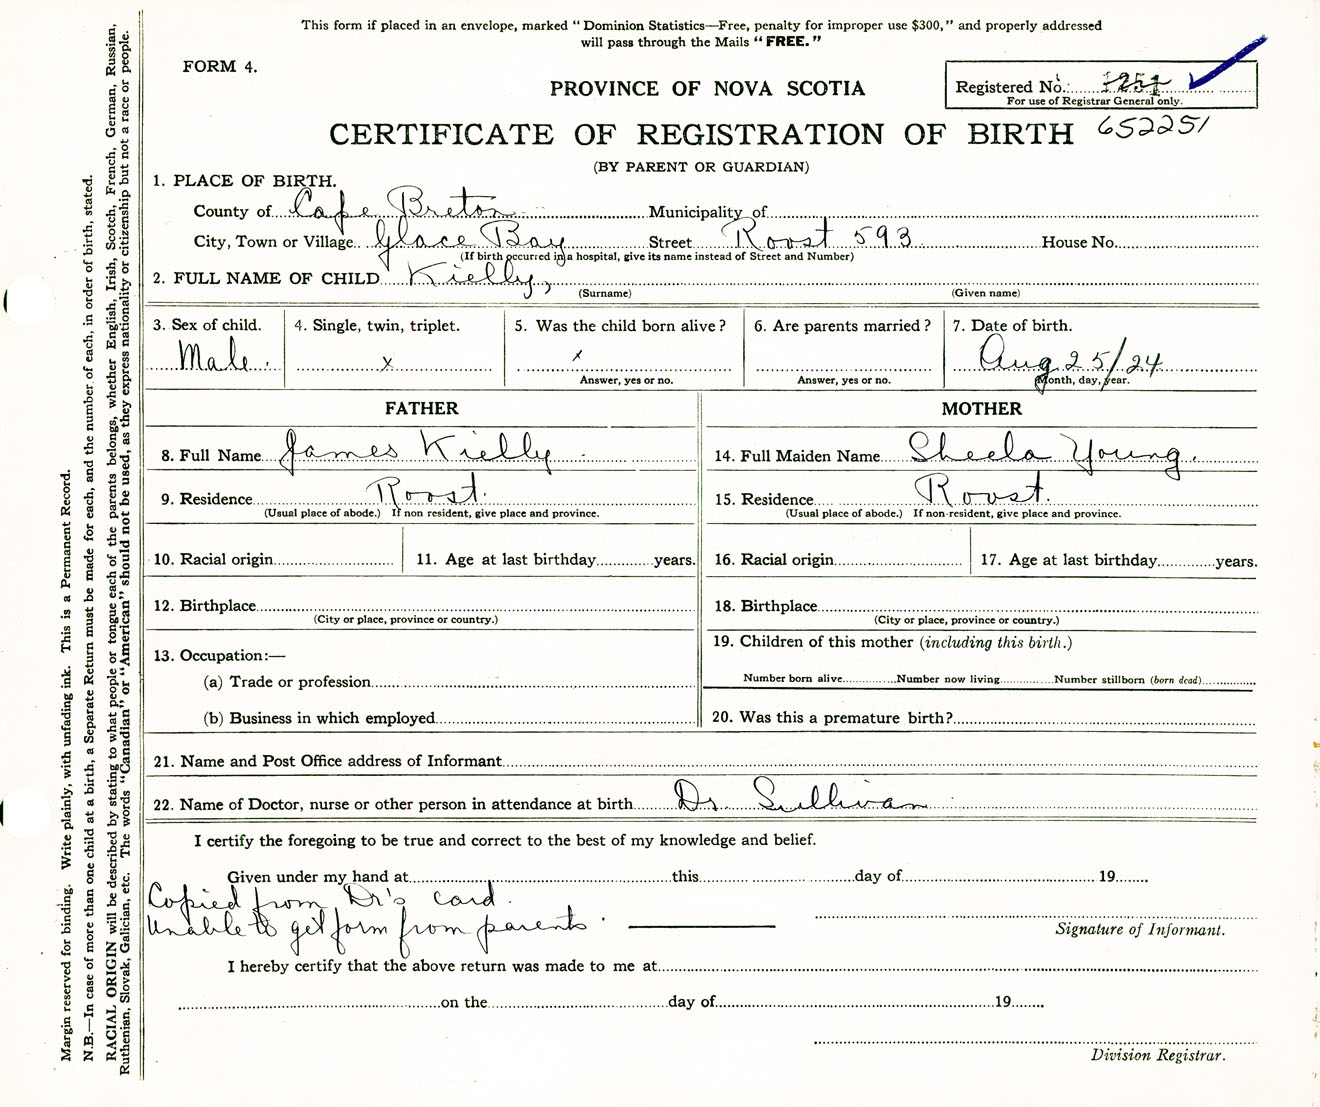 This form if placed in an envelope, marked "Dominion Statistics—Free, penalty for improper use $300," and properly addressed
will pass through the Mails "FREE."
FORM 4.
PROVINCE OF NOVA SCOTIA
Registered No.
For use of Registrar General only.
CERTIFICATE OF REGISTRATION OF BIRTH 652251
(BY PARENT OR GUARDIAN)
1. PLACE OF BIRTH.
County of Cape Breton Municipality of
City, Town or Village Glace Bay Street Roost 593 House No.
(If birth occurred in a hospital, give its name instead of Street and Number)
2. FULL NAME OF CHILD Kielly,
(Surname) (Given name)
3. Sex of child. 4. Single, twin, triplet. 5. Was the child born alive? 6. Are parents married? 7. Date of birth.
Male. x x Aug 25/24
Answer, yes or no. Answer, yes or no. Month, day, year.
FATHER MOTHER
8. Full Name James Kielly 14. Full Maiden Name Sheela Young.
9. Residence Roost. 15. Residence Roost.
(Usual place of abode.) If non resident, give place and province. (Usual place of abode.) If non-resident, give place and province.
10. Racial origin 11. Age at last birthday years. 16. Racial origin 17. Age at last birthday years.
12. Birthplace 18. Birthplace
(City or place, province or country.) (City or place, province or country.)
19. Children of this mother (including this birth.)
13. Occupation:—
(a) Trade or profession Number born alive Number now living Number stillborn (born dead)
(b) Business in which employed 20. Was this a premature birth?
21. Name and Post Office address of Informant
22. Name of Doctor, nurse or other person in attendance at birth Dr. Sullivan
I certify the foregoing to be true and correct to the best of my knowledge and belief.
Given under my hand at this day of 19
Copied from Dr's card.
Unable to get form from parents.
Signature of Informant.
I hereby certify that the above return was made to me at
on the day of 19
Division Registrar.
Margin reserved for binding. Write plainly, with unfading ink. This is a Permanent Record.
N.B.—In case of more than one child at a birth, a Separate Return must be made for each, and the number of each, in order of birth, stated.
RACIAL ORIGIN will be described by stating to what people or tongue each of the parents belongs, whether English, Irish, Scotch, French, German, Russian,
Ruthenian, Slovak, Galician, etc. The words "Canadian" or "American" should not be used, as they express nationality or citizenship but not a race or people.